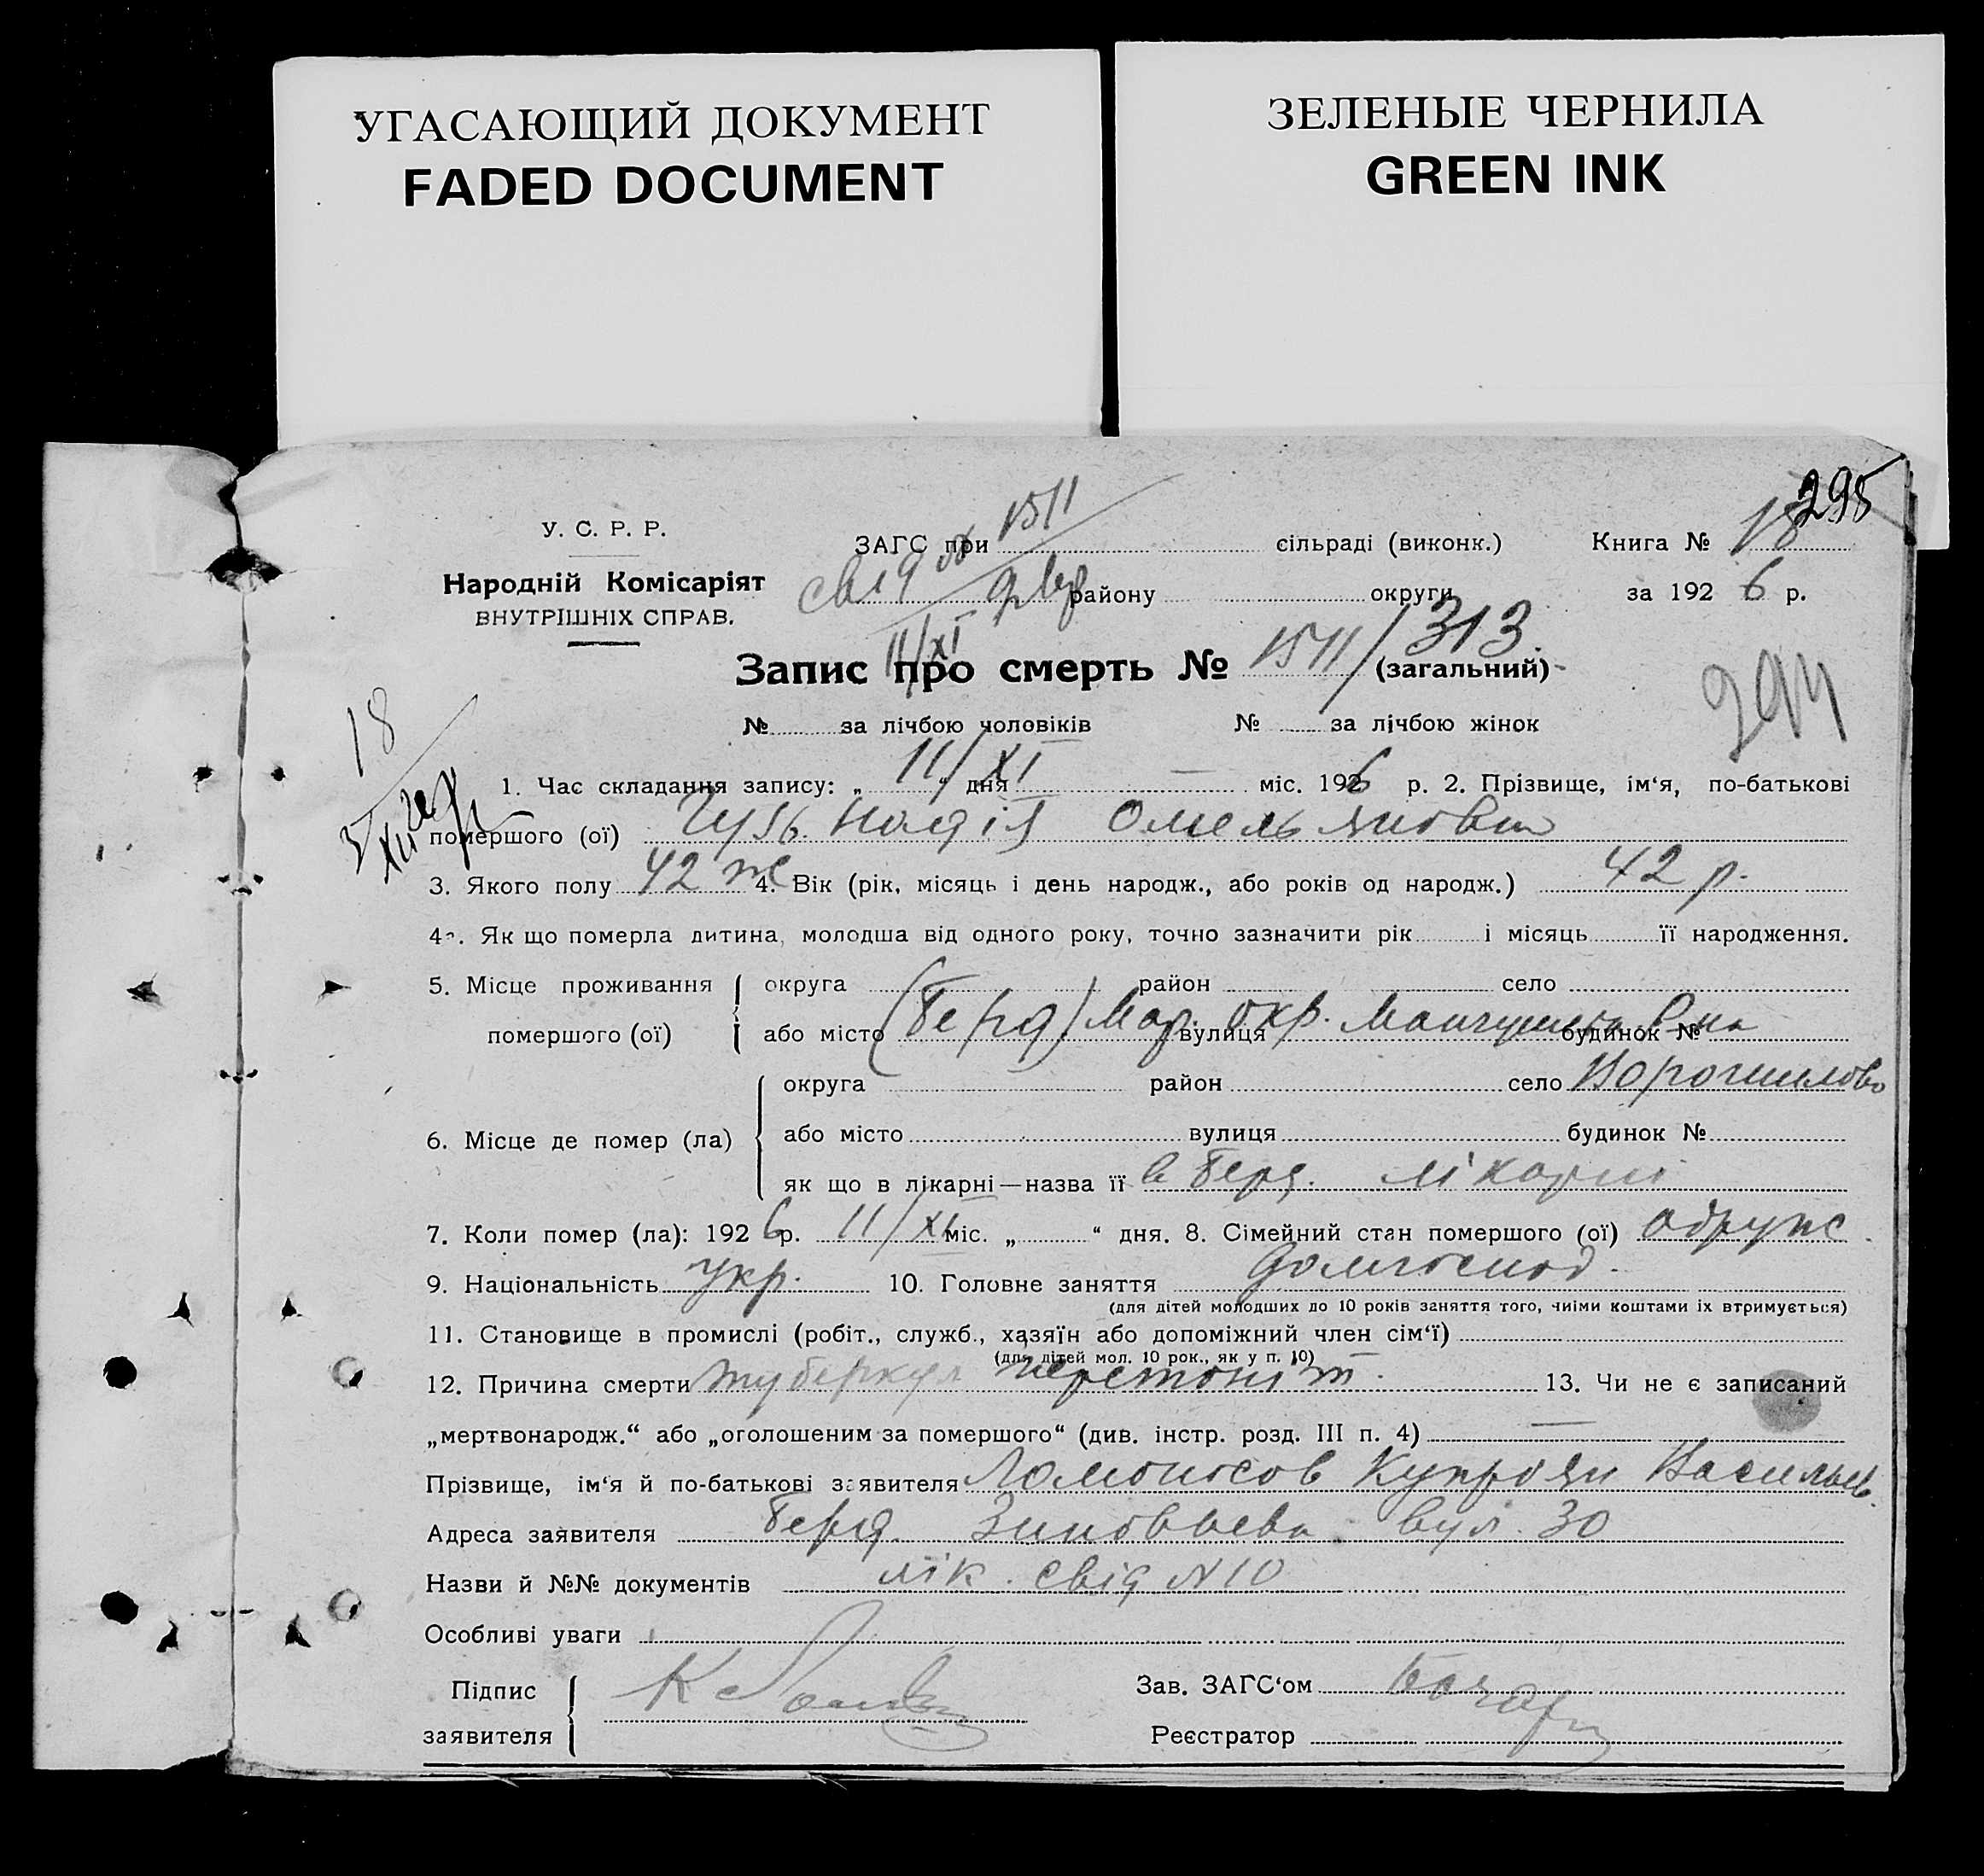 УГАСАЮЩИЙ ДОКУМЕНТ
FADED DOCUMENT
ЗЕЛЕНЫЕ ЧЕРНИЛА
GREEN INK
295
У. С. Р. Р.
Народній Комісаріят
ВНУТРІШНІХ СПРАВ.
ЗАГС при 1511 сільраді (виконк.) Книга № 18
району округи за 1926 р.
11/XI
Запис про смерть № 1511/313 (загальний)
294
№ за лічбою чоловіків № за лічбою жінок
18
1. Час складання запису: „11/XI“ дня — міс. 1926 р. 2. Прізвище, ім'я, по-батькові
помершого (ої) Гузь Надія Омельяновна
3. Якого полу 42 ж 4. Вік (рік, місяць і день народж., або років од народж.) 42 р.
4а. Як що померла дитина, молодша від одного року, точно зазначити рік і місяць її народження.
5. Місце проживання округа район село
помершого (ої) або місто (Берд) Мар. окр. вулиця будинок №
6. Місце де помер (ла) округа район село
або місто вулиця будинок №
як що в лікарні—назва її в Берд. лікарні
7. Коли помер (ла): 1926 р. 11/XI міс. „ “ дня. 8. Сімейний стан помершого (ої) одруж.
9. Національність Укр. 10. Головне заняття домгоспод.
(для дітей молодших до 10 років заняття того, чиїми коштами їх втримується)
11. Становище в промислі (робіт., служб., хазяїн або допоміжний член сім'ї)
(для дітей мол. 10 рок., як у п. 10)
12. Причина смерти туберкул перетоніт. 13. Чи не є записаний
„мертвонародж.“ або „оголошеним за помершого“ (див. інстр. розд. III п. 4) —
Прізвище, ім'я й по-батькові заявителя Ломоносов Купріян Васильев.
Адреса заявителя Берд. Зиновьева вул. 30
Назви й №№ документів лік. свід N 10
Особливі уваги
Підпис
заявителя
Зав. ЗАГС'ом
Реєстратор